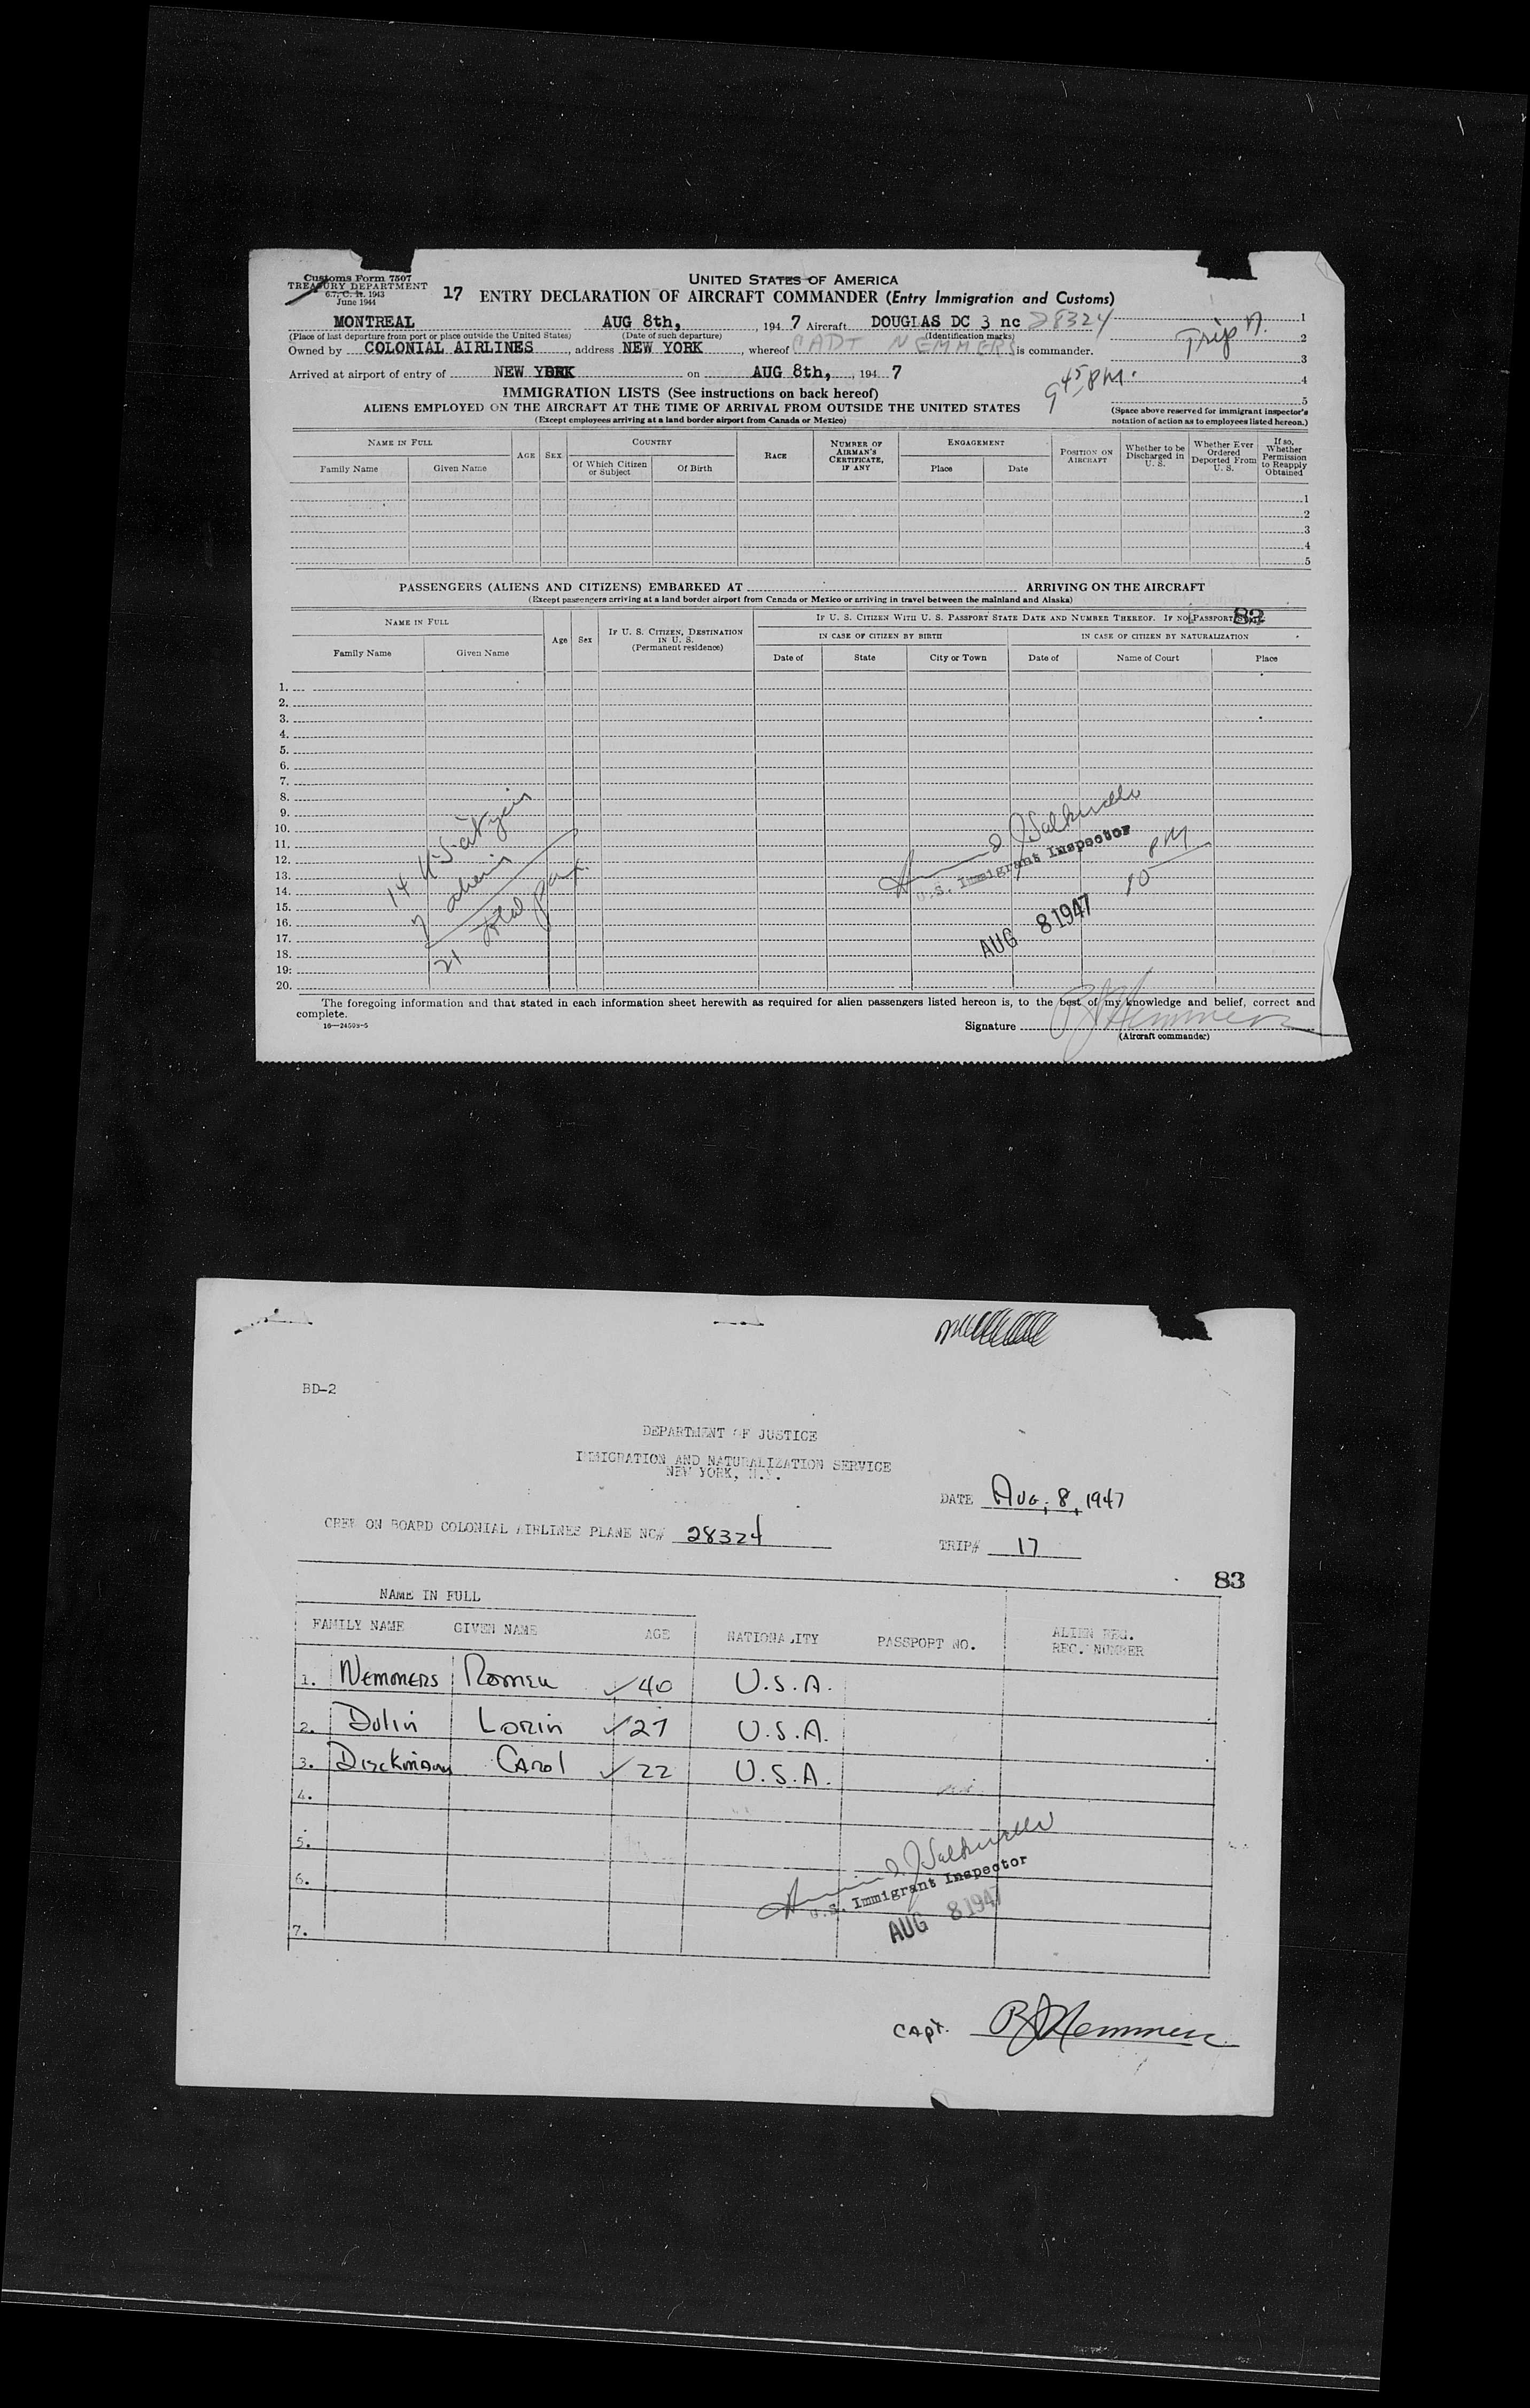 Customs Form 7507
TREASURY DEPARTMENT
June 1944
17
UNITED STATES OF AMERICA
ENTRY DECLARATION OF AIRCRAFT COMMANDER (Entry Immigration and Customs)
MONTREAL AUG 8th, , 194 7 Aircraft DOUGLAS DC 3 nc 28324 1
(Place of last departure from port or place outside the United States) (Date of such departure) (Identification marks) Trip 17. 2
Owned by COLONIAL AIRLINES, address NEW YORK, whereof CAPT NEMMERS is commander.
3
Arrived at airport of entry of NEW YORK on AUG 8th, , 194 7
9 45 PM. 4
IMMIGRATION LISTS (See instructions on back hereof)
5
ALIENS EMPLOYED ON THE AIRCRAFT AT THE TIME OF ARRIVAL FROM OUTSIDE THE UNITED STATES
(Space above reserved for immigrant inspector's notation of action as to employees listed hereon.)
(Except employees arriving at a land border airport from Canada or Mexico)
NAME IN FULL
Family Name Given Name
AGE SEX
COUNTRY
Of Which Citizen or Subject Of Birth
RACE
NUMBER OF AIRMAN'S CERTIFICATE, IF ANY
ENGAGEMENT
Place Date
POSITION ON AIRCRAFT
Whether to be Discharged in U. S.
Whether Ever Ordered Deported From U. S.
If so, Whether Permission to Reapply Obtained
1
2
3
4
5
PASSENGERS (ALIENS AND CITIZENS) EMBARKED AT ARRIVING ON THE AIRCRAFT
(Except passengers arriving at a land border airport from Canada or Mexico or arriving in travel between the mainland and Alaska)
NAME IN FULL
Family Name Given Name
Age Sex
IF U. S. CITIZEN, DESTINATION IN U. S.
(Permanent residence)
IF U. S. CITIZEN WITH U. S. PASSPORT STATE DATE AND NUMBER THEREOF. IF NO PASSPORT
IN CASE OF CITIZEN BY BIRTH IN CASE OF CITIZEN BY NATURALIZATION
Date of State City or Town Date of Name of Court Place
1.
2.
3.
4.
5.
6.
7.
8.
9.
10.
11.
12.
13.
14.
15.
16.
17.
18.
19.
20.
14 U.S. citizens
7 aliens
21 total pax.
U.S. Immigrant Inspector
10 PM
AUG 8 1947
The foregoing information and that stated in each information sheet herewith as required for alien passengers listed hereon is, to the best of my knowledge and belief, correct and
complete.
16—24508-5
Signature R J Nemmers
(Aircraft commander)
BD-2
DEPARTMENT OF JUSTICE
IMMIGRATION AND NATURALIZATION SERVICE
NEW YORK, N.Y.
DATE Aug. 8, 1947
CREW ON BOARD COLONIAL AIRLINES PLANE NC# 28324
TRIP# 17
83
NAME IN FULL
FAMILY NAME GIVEN NAME AGE NATIONALITY PASSPORT NO. ALIEN REG. REC. NUMBER
1. Nemmers ✓40 U.S.A.
2. Dulin Lorin ✓27 U.S.A.
3. Carol ✓22 U.S.A.
4.
5.
6.
7.
U.S. Immigrant Inspector
AUG 8 1947
Capt. R J Nemmers